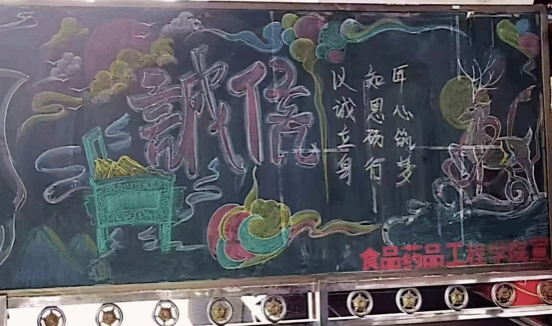 誠信
匠心筑梦
知恩砺行
以诚立身
食品药品工程学院宣